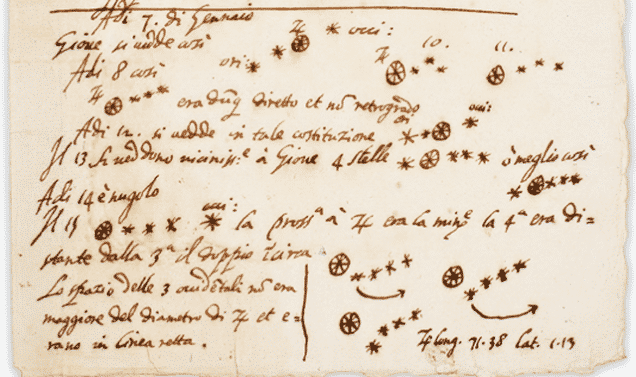 Adi 7. di Gennaio
Gione si uedde così ori: ♃ occi:
Adi 8 così ♃ 10. 11.
♃ era dūq diretto et nõ retrogrado
Adi 12. si uedde in tale costituzione ori occi:
Il 13 si ueddono viciniss.e à Gioue 4 stelle ò meglio così
Adi 14 è nugolo
Il 15 occi: la pross.a à ♃ era la min.e la 4.a era di=
stante dalla 3.a il doppio ĩcirca
Lo spazio delle 3 occidẽtali nõ era
maggiore del diametro di ♃ et e=
rano in linea retta.
♃ long. 71.38 lat. 1.13